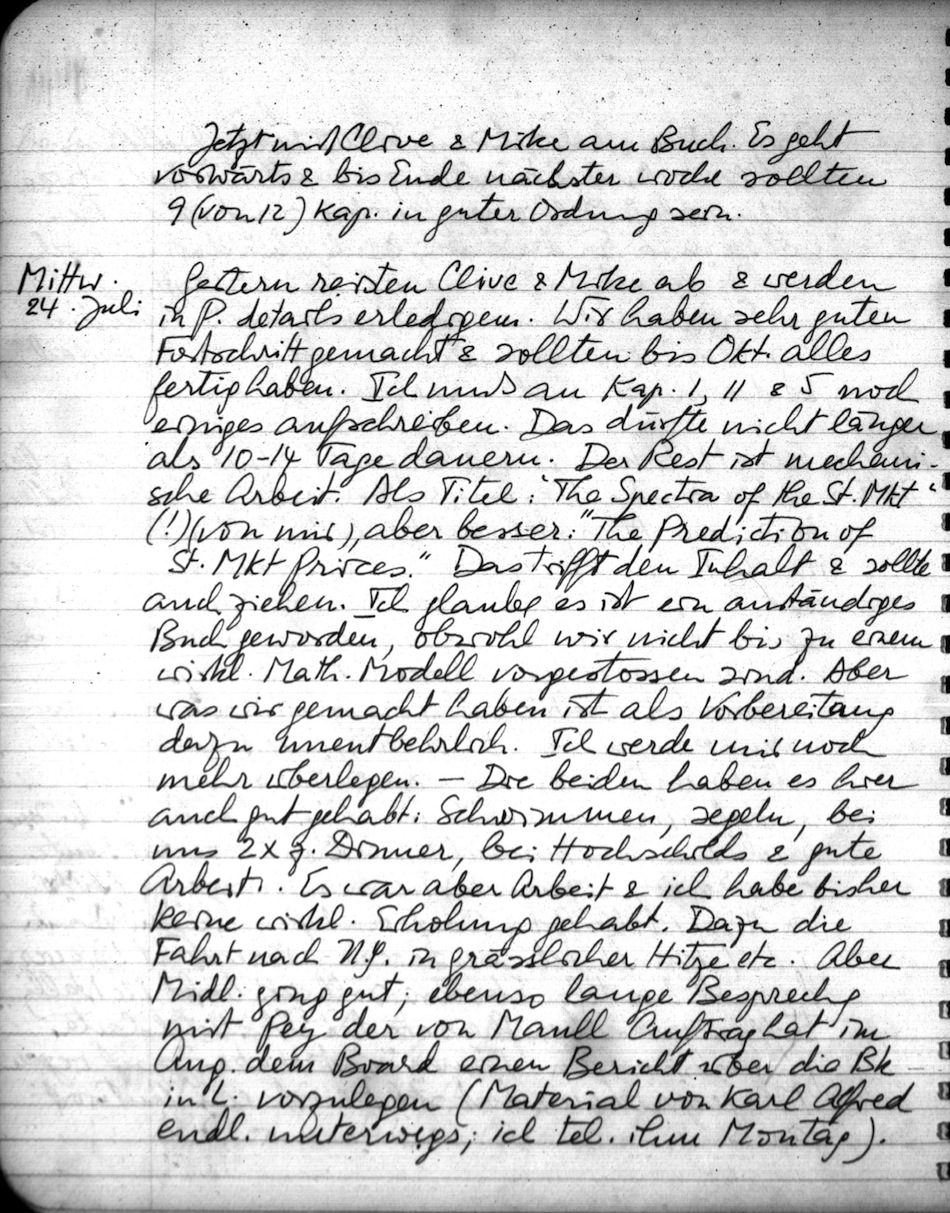 Jetzt mit Clive & Mike am Buch. Es geht
vorwärts & bis Ende nächster Woche sollten
9 (von 12) Kap. in guter Ordnung sein.
Mittw.
24. Juli
Gestern reisten Clive & Mike ab & werden
in P. details erledigen. Wir haben sehr guten
Fortschritt gemacht & sollten bis Okt. alles
fertig haben. Ich muss an Kap. 1, 11 & 5 noch
einiges aufschreiben. Das dürfte nicht länger
als 10-14 Tage dauern. Der Rest ist mechani-
sche Arbeit. Als Titel: "The Spectra of the St. Mkt"
(!) (von mir), aber besser: "The Prediction of
St. Mkt Prices." Das trifft den Inhalt & sollte
auch ziehen. Ich glaube es ist ein anständiges
Buch geworden, obwohl wir nicht bis zu einem
wirkl. Math. Modell vorgestossen sind. Aber
was wir gemacht haben ist als Vorbereitung
dazu unentbehrlich. Ich werde mir noch
mehr überlegen. — Die beiden haben es hier
auch gut gehabt: Schwimmen, segeln, bei
uns 2x z. Dinner, bei Hochschilds & gute
Arbeit. Es war aber Arbeit & ich habe bisher
keine wirkl. Erholung gehabt. Dazu die
Fahrt nach N.Y. in grässlicher Hitze etc. Aber
Midl. ging gut; ebenso lange Besprechg
mit der von Auftrag hat im
Aug. dem Board einen Bericht über die Bk
in L. vorzulegen (Material von Karl Alfred
endl. unterwegs; ich tel. ihm Montag).